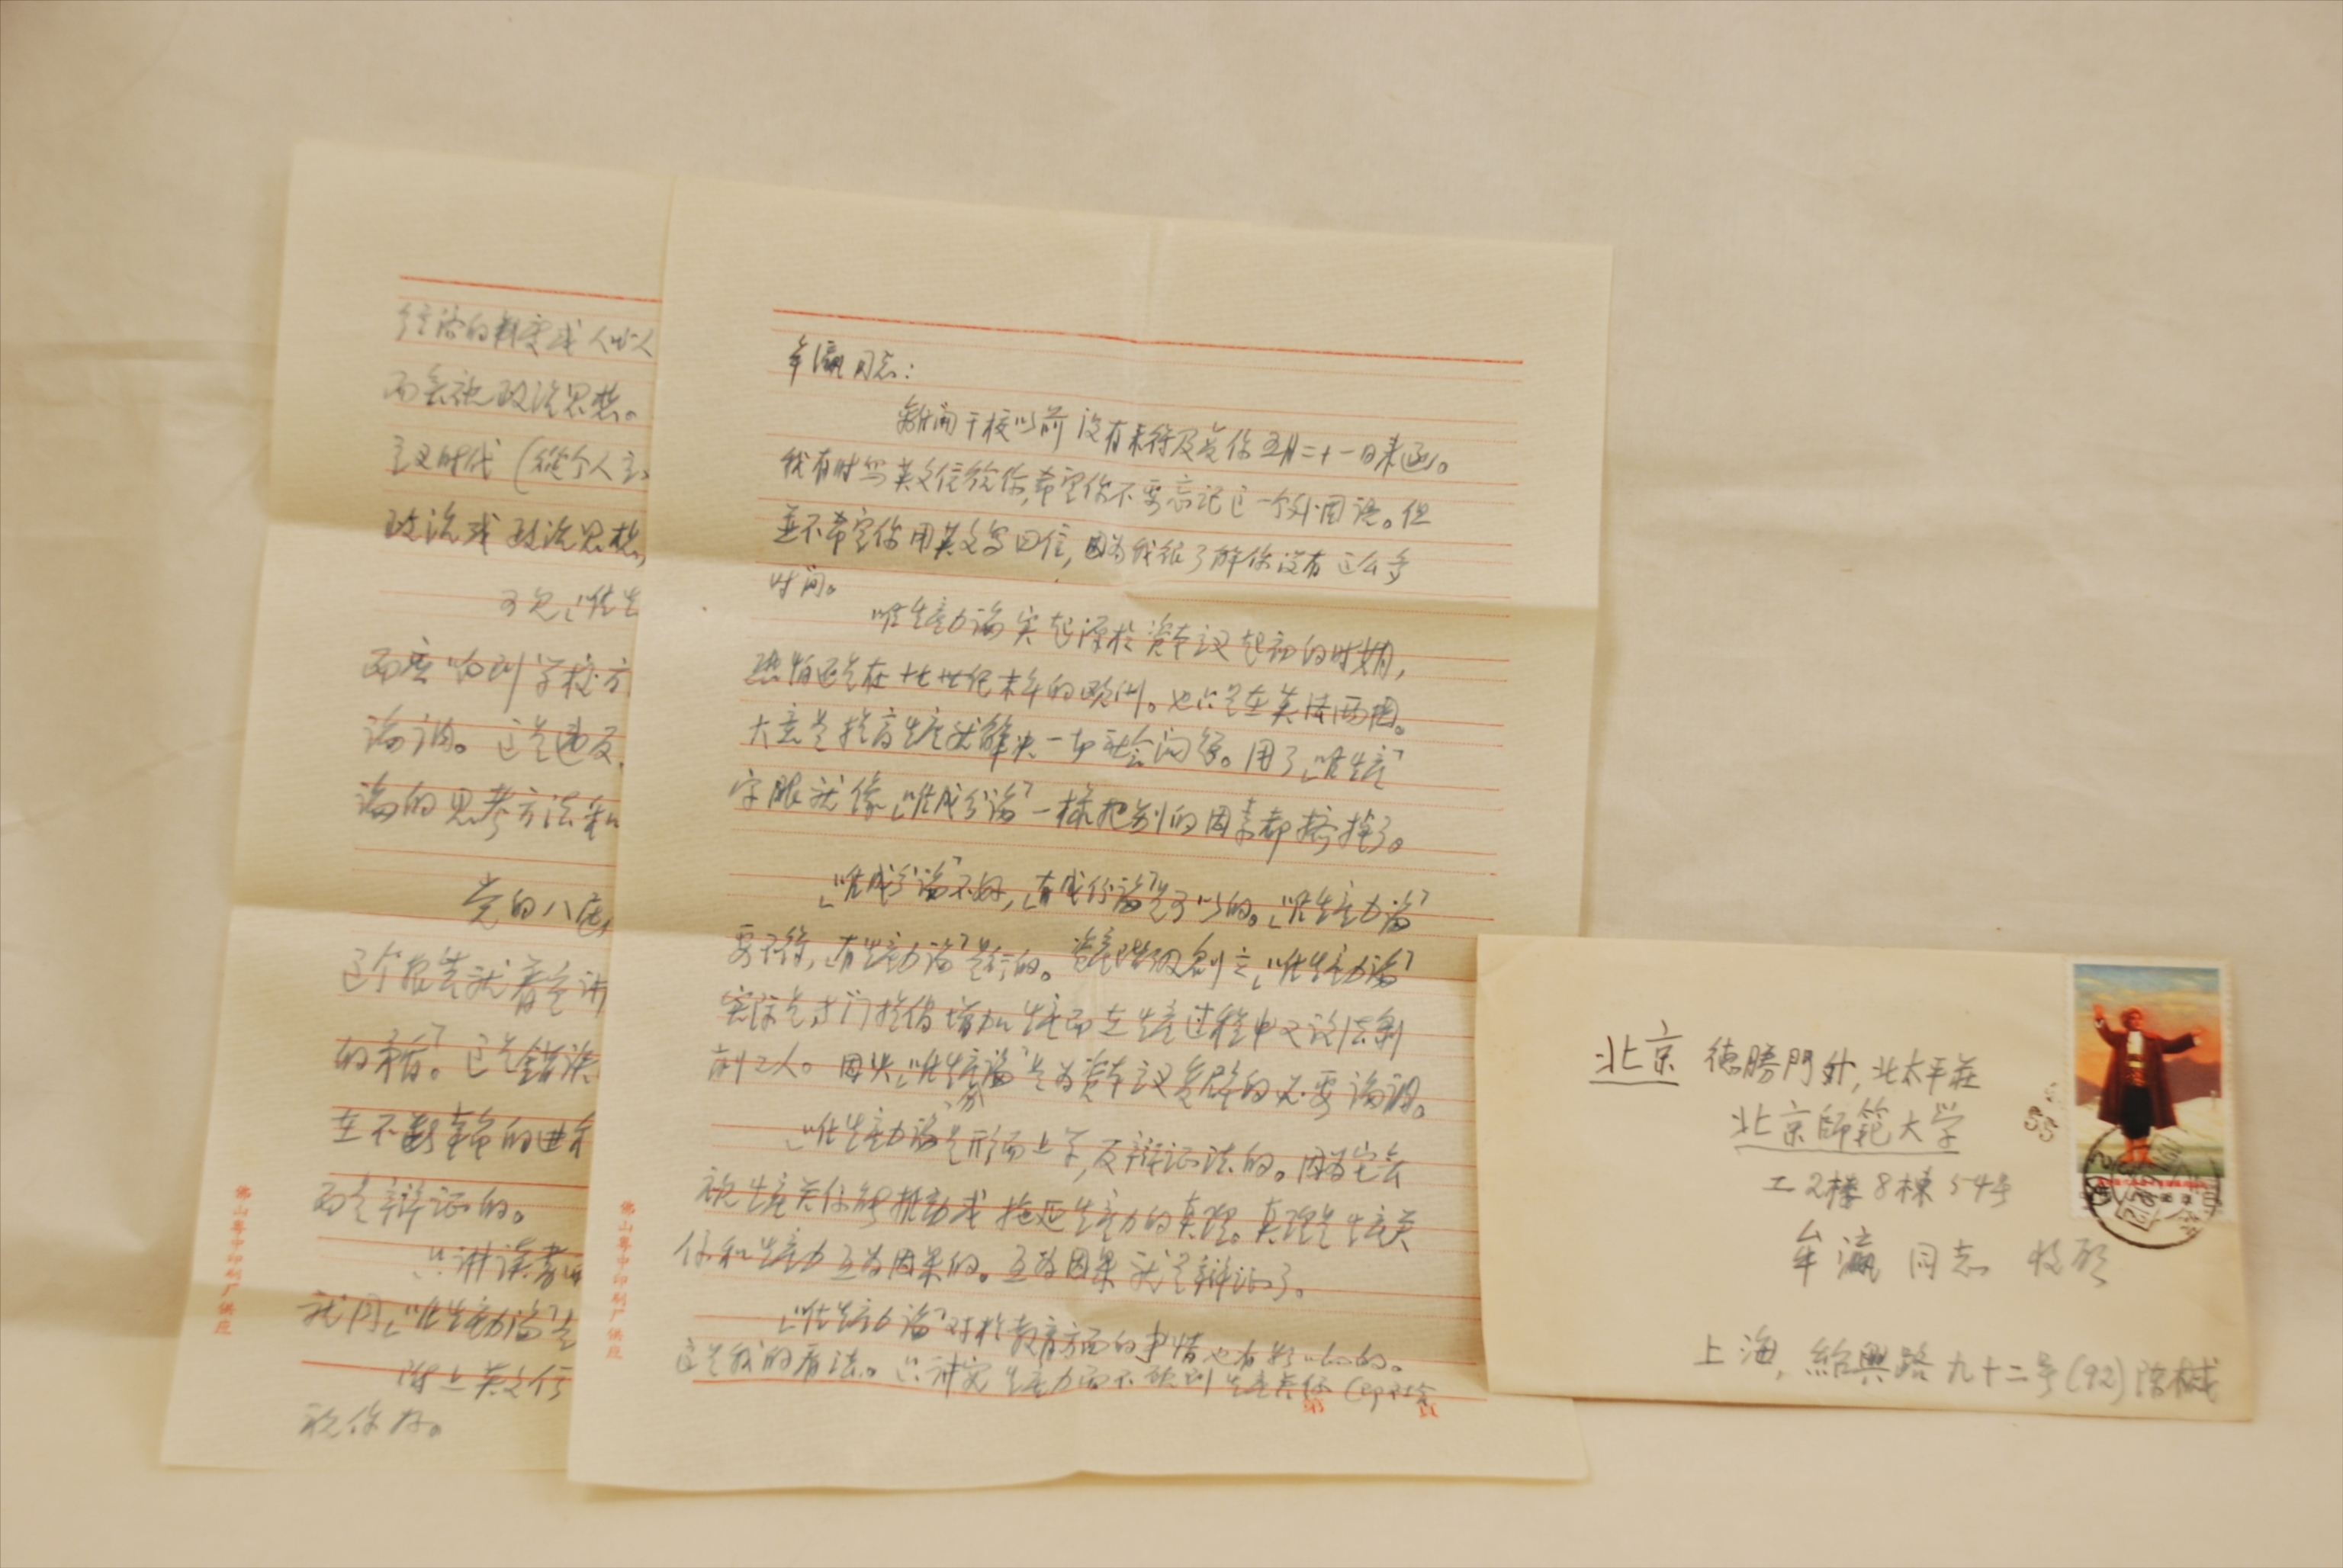 经济的料变成人
而丢视政治思想。
主义时代(从个人主
政治或政治思想,
可见「唯生
而应 到学校方
论调。这是违反
论的思考方法和
党的八届
这个报告就着
的矛盾。这是错误
在不断革命的
而是辩证的。
只讲读书
就同「唯生产力论」是
附上英文信
祝你好。
佛山粤中印制厂供应
牟瀛同志:
离开干校以前没有来得及复你五月二十一日来函。
我有时写英文信给你,希望你不要忘记这一个外国语。但
並不希望你用英文写回信,因为我很了解你没有这么多
时间。
唯生产力论实起源於资本主义起初的时期,
恐怕还是在十七世纪末年的欧洲。也只是在英法两国。
大意是提高生产就解决一切社会问题。用了「唯生产」
字眼就像「唯成分论」一样把别的因素都挤掉了。
「唯成分论」不好,「有成份论」是可以的。「唯生产力论」
要不得,「有生产力论」是行的。资产阶级创立「唯生产力论」
实际是专门提倡增加生产而在生产过程中又设法剥
削工人。因此「唯生产力论」是为资本主义复辟的必要论调。
「唯生产力论」是形而上学,反辩证法的。因为它丢
视生产关係能推动或拖延生产力的真理。真理是生产关
係和生产力互为因果的。互为因果就是辩证了。
「唯生产力论」对於教育方面的事情也有影响的。
这是我的看法。只讲究生产力而不顾到生产关係(即社会
佛山粤中印制厂供应
第 页
北京 德勝門外,北太平莊
北京師範大学
工2楼8棟54号
牟瀛 同志 收啟
上海,紹興路九十二号(92)陈械